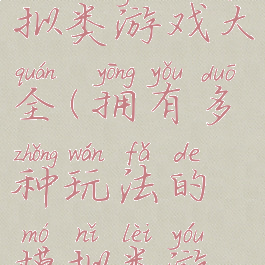 拟类游戏大
quán yōng yǒu duō
全(拥有多
zhǒng wán fǎ de
种玩法的
mó nǐ lèi yóu
模拟类游